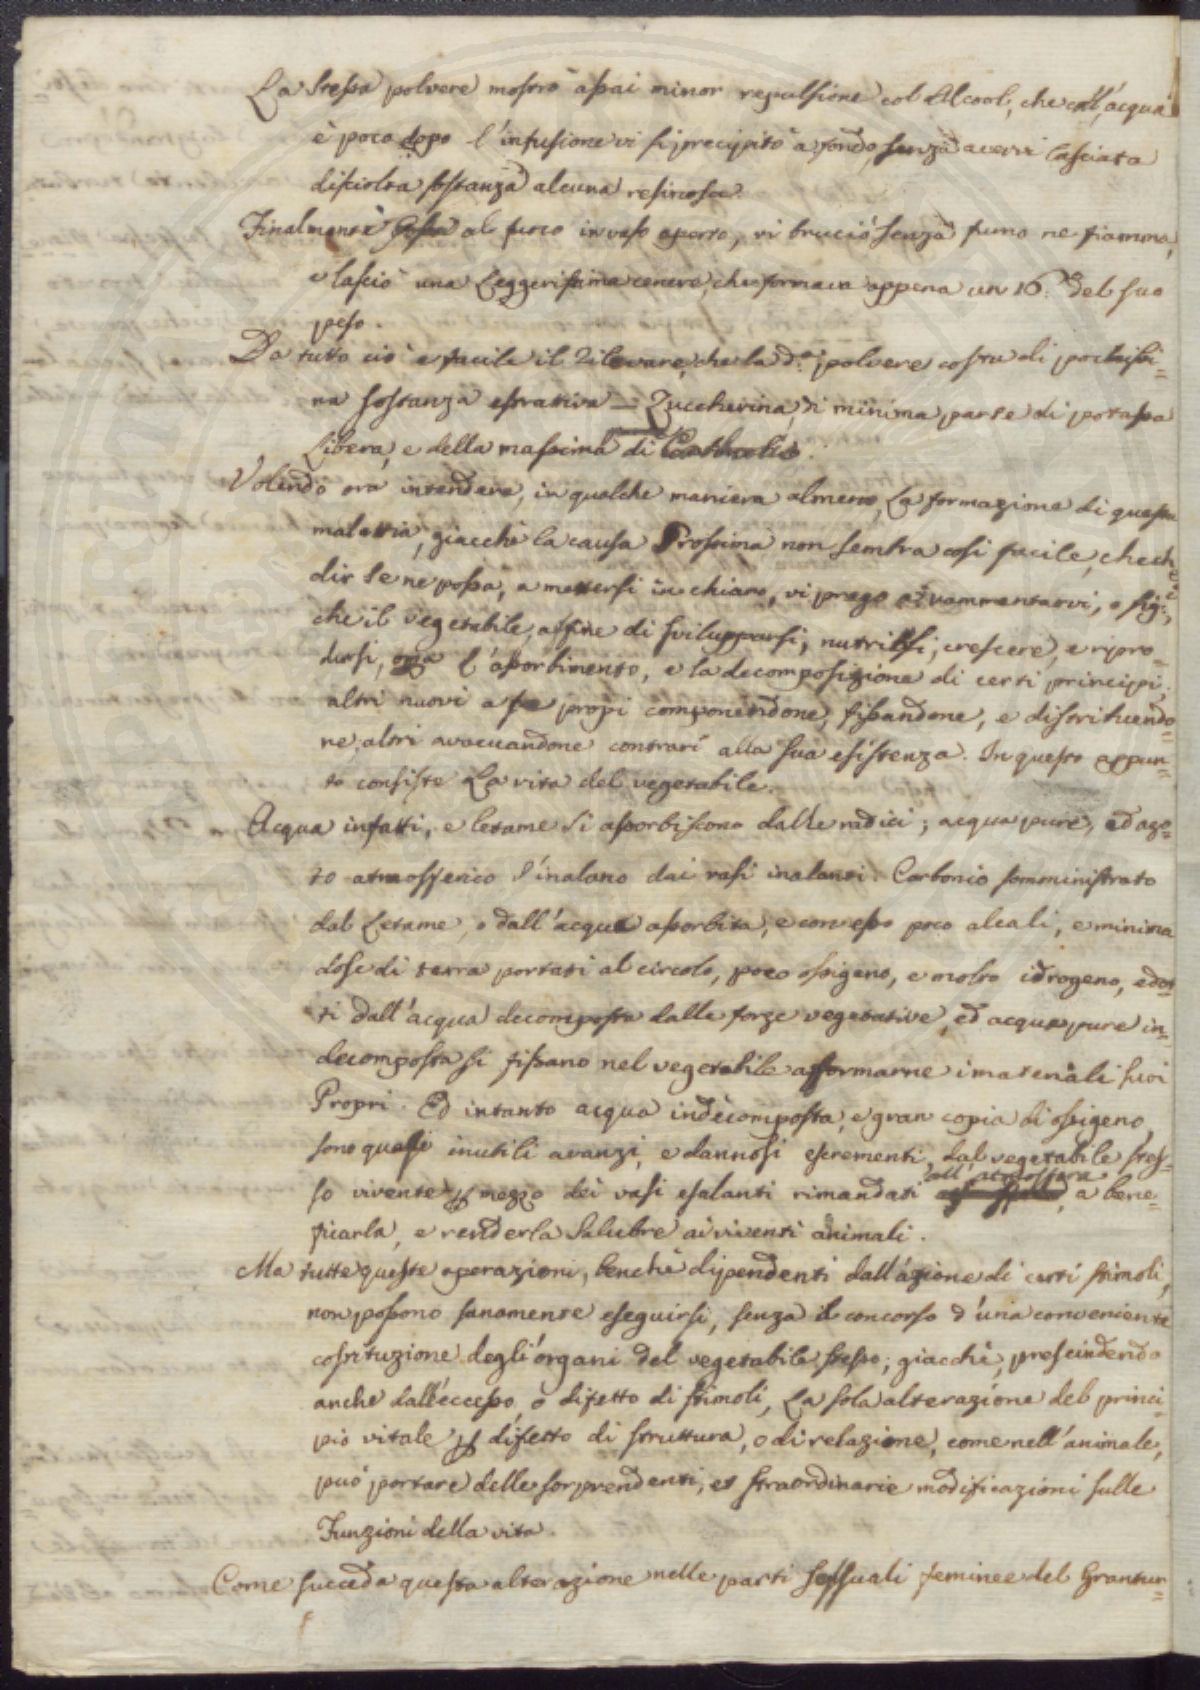 La stessa polvere mostrò assai minor repulsione col Alcool, che coll'acqua
e poco dopo l'infusione vi si precipitò a fondo, senza avervi lasciata
disciolta sostanza alcuna resinosa.
Finalmente posta al fuoco in vaso aperto, vi bruciò senza fumo ne fiamma,
e lasciò una leggerissima cenere, che formava appena un 16.mo del suo
peso.
Da tutto ciò e facile il rilevare, che la d.a polvere costa di pochissi=
ma sostanza estrattiva — Zuccherina, di minima parte di potassa
Libera, e della massima di
Volendo ora intendere, in qualche maniera almeno, La formazione di questa
malattia, giacchè la causa Prossima non sembra così facile, che che
dir se ne possa, a mettersi in chiaro, vi prego a rammentarvi, o Sig:i,
che il vegetabile, affine di svilupparsi, nutrirsi, crescere, e ripro=
dursi, l'assorbimento, e la decomposizione di certi principj,
altri nuovi a se proprj componendone, fissandone, e distribuendo=
ne, altri evacuandone contrarj alla sua esistenza. In questo appun=
to consiste La vita del vegetabile.
Acqua infatti, e letame si assorbiscono dalle radici; acqua pure, ed azo=
to atmosferico s'inalano dai vasi inalanti. Carbonio somministrato
dal Letame, o dall'acqua assorbita, e con esso poco alcali, e minima
dose di terra portati al circolo, poco ossigeno, e molto idrogeno, edot=
ti dall'acqua decomposta dalle forze vegetative, ed acqua pure in=
decomposta si fissano nel vegetabile a formarne i materiali suoi
Proprj. Ed intanto acqua indecomposta, e gran copia di ossigeno,
sono quasi inutili avanzi, e dannosi escrementi, dal vegetabile stes=
so vivente per mezzo dei vasi esalanti rimandati all'atmosfera, a bene=
ficarla, e renderla Salubre ai viventi animali.
Ma tutte queste operazioni, benchè dipendenti dall'azione di certi stimoli,
non possono sanamente eseguirsi, senza il concorso d'una conveniente
costituzione degli organi del vegetabile stesso; giacchè, prescindendo
anche dall'eccesso, o difetto di stimoli, La sola alterazione del princi=
pio vitale per difetto di struttura, o di relazione, come nell'animale,
può portare delle sorprendenti, et straordinarie modificazioni sulle
Funzioni della vita.
Come succeda questa alterazione nelle parti sessuali feminee del Grantur=